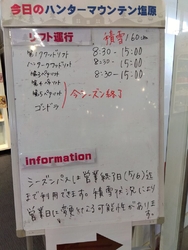 今日のハンターマウンテン塩原
リフト運行 積雪160cm
第1クワッドリフト 8:30-15:00
ハンタークワッドリフト 8:30-15:00
第3ペアリフト 8:30-15:00
第5ペアリフト
ゴンドラ
今シーズン終了
information
シーズンパスは営業終了日(5/6)迄
まで利用できます。積雪状況により
営業日も変更となる可能性があります。